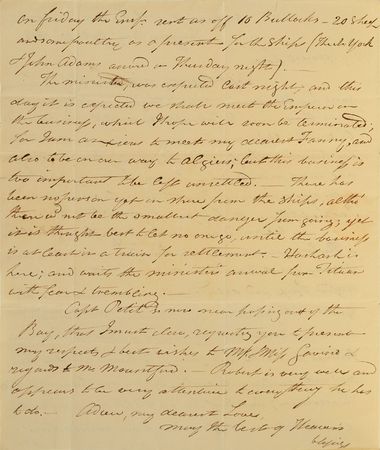 on friday the Emp. sent us off 10 Bullocks – 20 Sheep
and some poultry as a present for the Ships (the N. York
& John Adams arrived on Thursday night). –
The minister was expected last night, and this
day it is expected we shall meet the Emperor on
the business, which I hope will soon be terminated;
for I am anxious to meet my dearest Fanny, and
also to be on our way to Algiers; but this business is
too important to be left unsettled. – There has
been no person yet on shore from the Ships, altho
there would not be the smallest danger from going; yet
it is thought best to let no one go, until the business
is at least in a train for settlement. – Hashash is
here; and waits the ministers arrival from Tetuan
with fear & trembling. –
Capt Petit is now near passing out of the
Bay, that I must close, requesting you to present
my respects & best wishes to Mr & Miss Gavino &
regards to Mr Mountford. – Robert is very well and
appears to be very attentive to everything he has
to do. – Adieu, my dearest Love,
may the best of Heavens
blessings